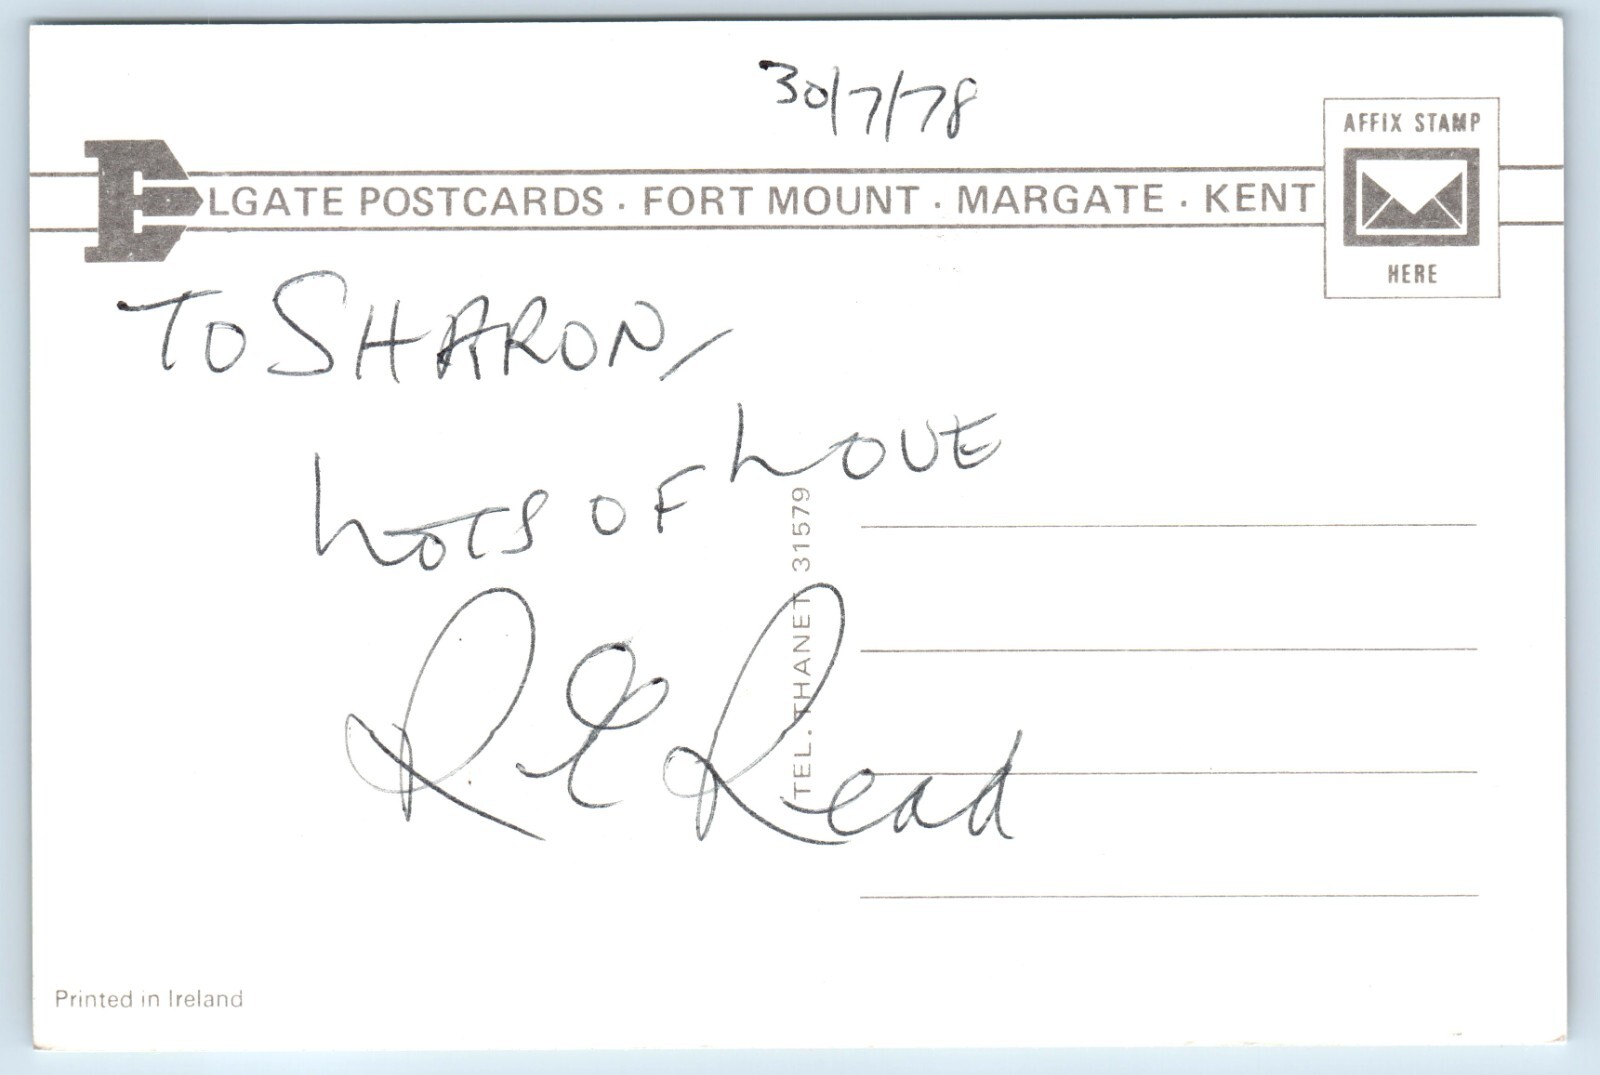 30/7/78
ELGATE POSTCARDS · FORT MOUNT · MARGATE · KENT
AFFIX STAMP
HERE
TO SHARON,
LOTS OF LOVE
R. E Read
TEL. THANET 31579
Printed in Ireland